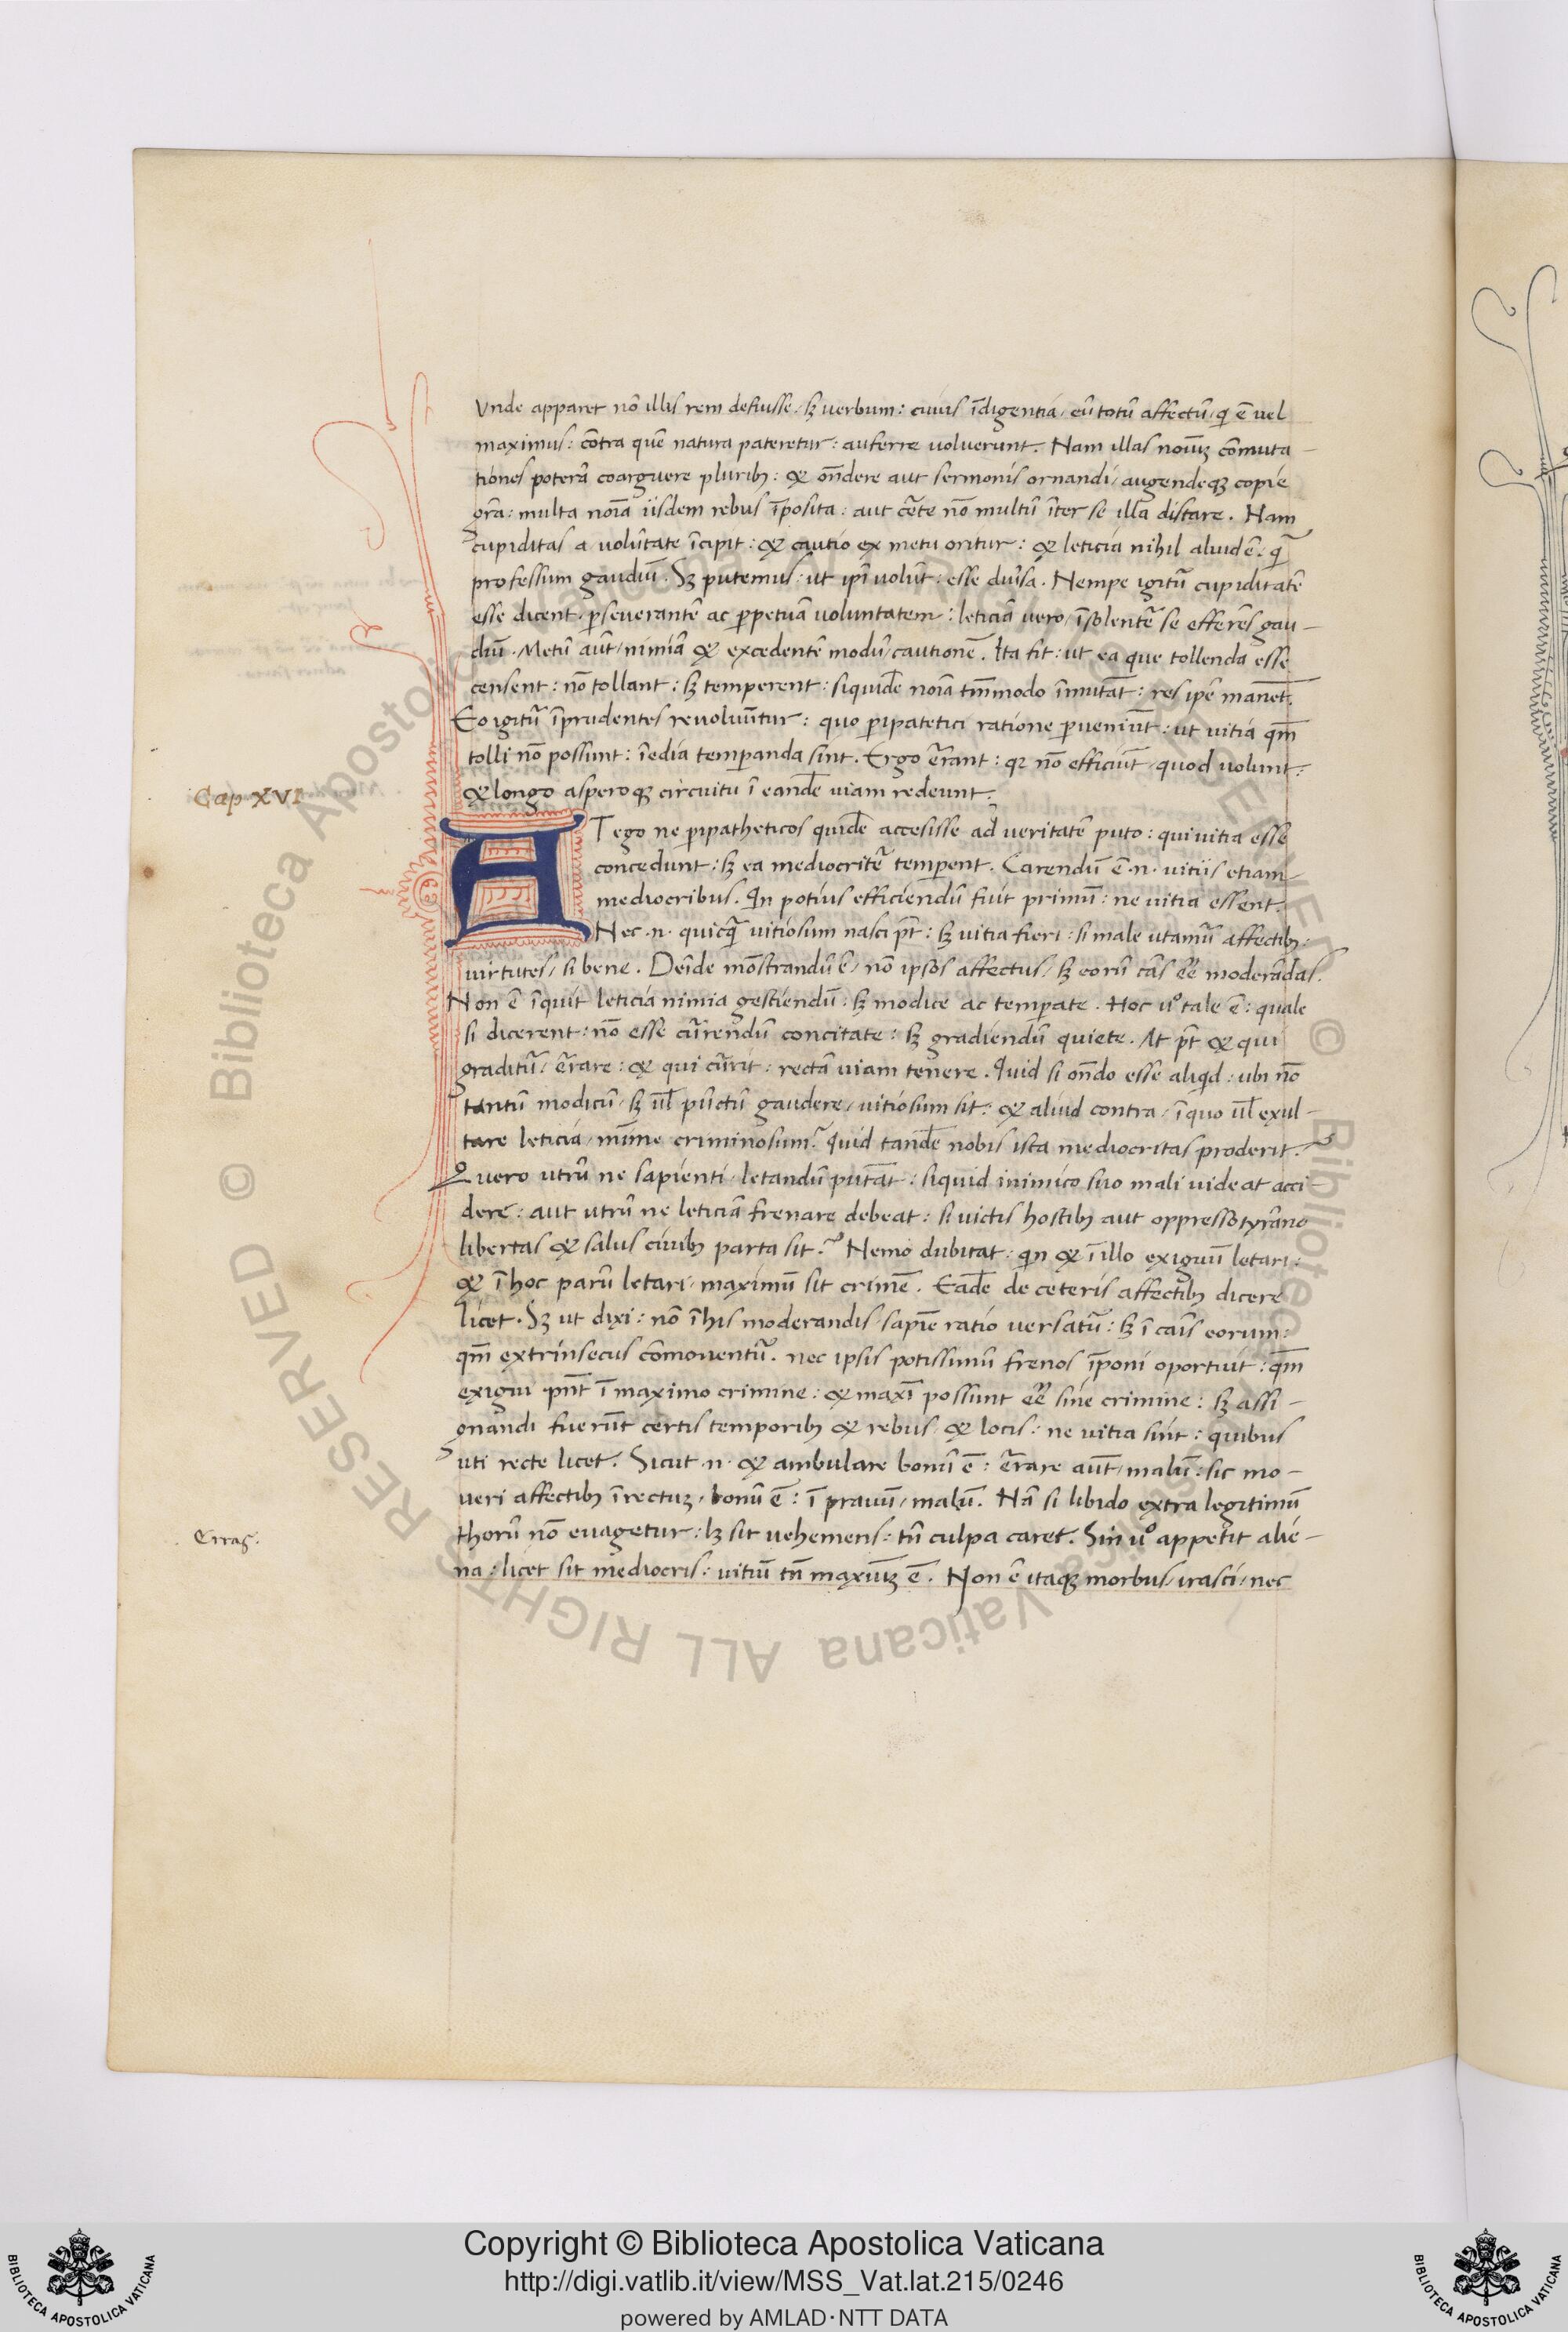 Vnde apparet nō illis rem defuisse, sꝫ verbum: cuius īdigentia, eū totū affectū, qi ē vel
maximus: cōtra quē natura pateretur: auferre voluerunt. Nam illas noīuꝫ cōmuta-
tiones poterā coarguere pluribꝫ: & oñdere aut sermonis ornandi, augendeqꝫ copie
grā: multa noīa iisdem rebus īposita: aut c̄te nō multū īter se illa distare. Nam
cupiditas a volūtate īcipit: & cautio ex metu oritur: & leticia nihil aliud ē: q̄
professum gaudiū. Sꝫ putemus: ut ip̄i volūt: esse div̄sa. Nempe igitur̄ cupiditatē
esse dicent ꝑseverantē ac ꝑpetuā voluntatem: leticiā vero, īsolentē se efferēs gau-
diū. Metū aūt, nimiā & excedentē modū, cautionē. Ita fit: ut ea que tollenda esse
censent: nō tollant: sꝫ temperent: siquidē noīa tm̄modo īmutāt: res ip̄e manēt.
Eo igitū īprudentes revoluūtur: quo ꝑipatetici ratione ꝑveniūt: ut vitia qm̄
tolli nō possunt: ī media temꝑanda sint. Ergo ēr̄ant: qꝛ nō efficiūt, quod volunt:
& longo asperoqꝫ circuitu ī eandē viam redeunt.
Cap XVI
AT ego ne ꝑipatheticos quidē accesisse ad veritatē puto: qui vitia esse
concedunt: sꝫ ea mediocritē temꝑent. Carendū ē .n. vitiis etiam
mediocribus. Qn potius efficiendū fuit primū: ne vitia essent.
Nec .n. quicq̄ vitiosum nasci pt̄: sꝫ vitia fieri: si male utamū affectibꝫ:
virtutes, si bene. Deīde mōstrandū ē, nō ipsos affectus, sꝫ eorū cās eē moderādas.
Non ē īquit leticia nimia gestiendū: sꝫ modice ac temꝑate. Hoc uº tale ē: quale
si dicerent: nō esse cūrendū concitate: sꝫ gradiendū quiete. At pt̄ & qui
graditū, ēr̄are: & qui cūrit: rectā viam tenere. Quid si oñdo esse aliqid: ubi nō
tantū modicū, sꝫ ul̄ pūctū gaudere, vitiosum sit: & aliud contra, ī quo ul̄ exul-
tare leticia, mīme criminosum? Quid tandē nobis ista mediocritas proderit?
Quero utrū ne sapienti, letandū putāt: siquid inimico suo mali videat acci-
dere: aut utrū ne leticiā frenare debeat: si victis hostibꝫ aut oppresso tyrāno
libertas & salus civibꝫ parta sit? Nemo dubitat: qin & ī illo exiguū letari:
& ī hoc parū letari, maximū sit crimē. Eadē de ceteris affectibꝫ dicere
licet. Sꝫ ut dixi: nō ī his moderandis, sapīe ratio versatū: sꝫ ī caīs eorum:
qm̄ extrinsecus cōmoventū. nec ipsis potissimū frenos īponi oportuit: qm̄
exigui pn̄t ī maximo crimine: & maxī possunt eē sine crimine: sꝫ assi-
gnandi fuerūt certis temporibꝫ & rebus, & locis: ne vitia sint: quibus
uti recte licet. Sicut .n. & ambulare bonū ē: ēr̄are aūt, malū: sic mo-
veri affectibꝫ ī rectuꝫ, bonū ē: ī pravū, malū. Nā si libido extra legitimū
thorū nō evagetur: lꝫ sit vehemens: tn̄ culpa caret. Sin uº appetit alie-
na: licet sit mediocris: vitiū tn̄ maxīuꝫ ē. Non ē itaqꝫ morbus, irasci, nec
Copyright © Biblioteca Apostolica Vaticana
http://digi.vatlib.it/view/MSS_Vat.lat.215/0246
powered by AMLAD·NTT DATA
BIBLIOTECA APOSTOLICA VATICANA
BIBLIOTECA APOSTOLICA VATICANA